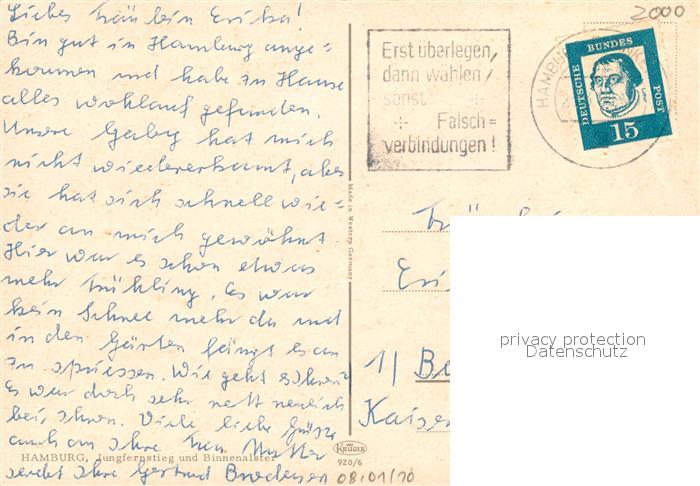 Liebes Fräulein Erika!
Bin gut in Hamburg ange=
kommen und habe zu Hause
alles wohlauf gefunden.
Unsere Gaby hat mich
nicht wiedererkannt, aber
sie hat sich schnell wie=
der an mich gewöhnt.
Hier war es schon etwas
mehr Frühling. Es war
kein Schnee mehr da und
in den Gärten fängt es an
zu spriessen. Wie geht es Ihnen?
Es war doch sehr nett neulich
bei Ihnen. Viele liebe Grüsse
auch an Ihre Frau Mutter
sendet Ihre Gertrud
HAMBURG, Jungfernstieg und Binnenalster
Made in Western Germany
KRÜGER
920/6
08.01/10
2000
Erst überlegen,
dann wählen,
sonst
Falsch=
verbindungen!
HAMBURG
DEUTSCHE BUNDES POST
15
1/
Kaiser
privacy protection
Datenschutz